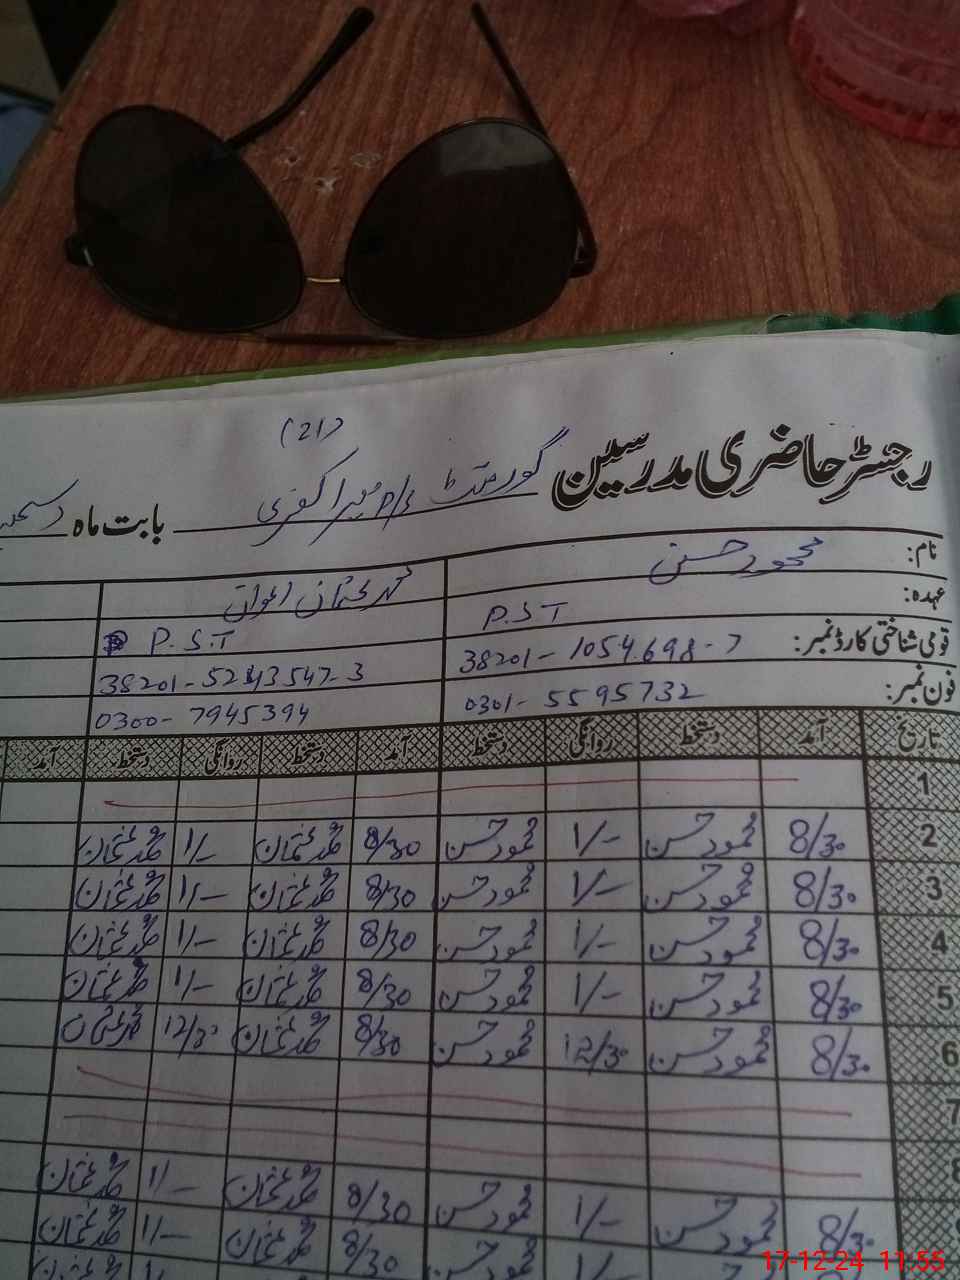 (21)
رجسٹر حاضری مدرسین گورنمنٹ p/s میرا کفری بابت ماہ دسمبر
نام: محمود حسن محمد عثمان اعوان
عہدہ: P.S.T P.S.T
قومی شناختی کارڈ نمبر: 38201-1054698-7 38201-5243547-3
فون نمبر: 0301-5595732 0300-7945394
تاریخ آمد دستخط روانگی دستخط آمد دستخط روانگی دستخط آمد
1
2 8/30 محمود حسن 1/- محمود حسن 8/30 محمد عثمان 1/- محمد عثمان
3 8/30 محمود حسن 1/- محمود حسن 8/30 محمد عثمان 1/- محمد عثمان
4 8/30 محمود حسن 1/- محمود حسن 8/30 محمد عثمان 1/- محمد عثمان
5 8/30 محمود حسن 1/- محمود حسن 8/30 محمد عثمان 1/- محمد عثمان
6 8/30 محمود حسن 12/30 محمود حسن 8/30 محمد عثمان 12/30 محمد عثمان
7
8
8/30 محمود حسن 1/- محمود حسن 8/30 محمد عثمان 1/- محمد عثمان
8/30 محمد عثمان 1/- محمد عثمان
17-12-24 11:55